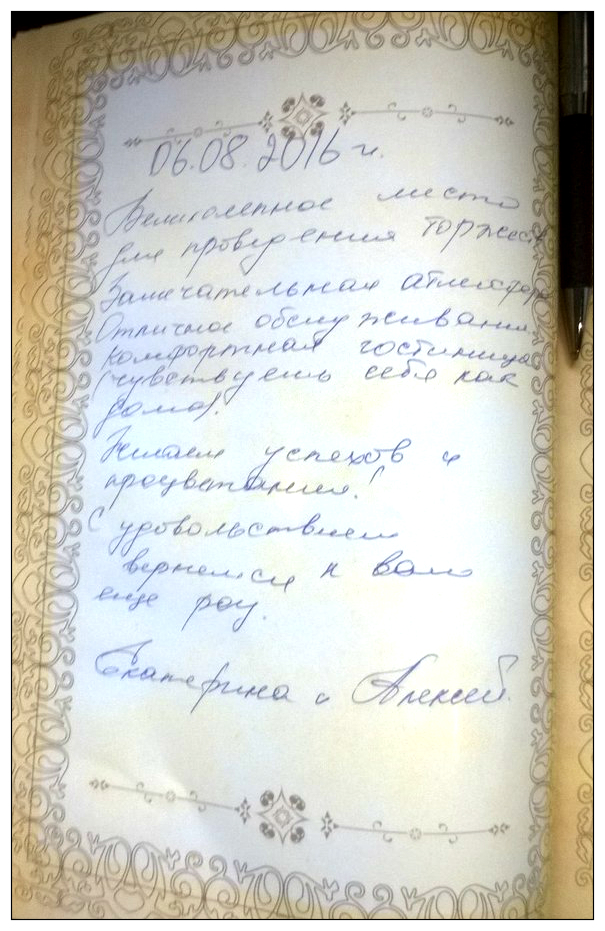 06.08.2016 г.
Великолепное место
для проведения торжеств
Замечательная атмосфера
Отличное обслуживание
Комфортная гостиница
(чувствуешь себя как
дома).
Желаем успехов и
процветания!
С удовольствием
вернемся к вам
еще раз.
Екатерина и Алексей.